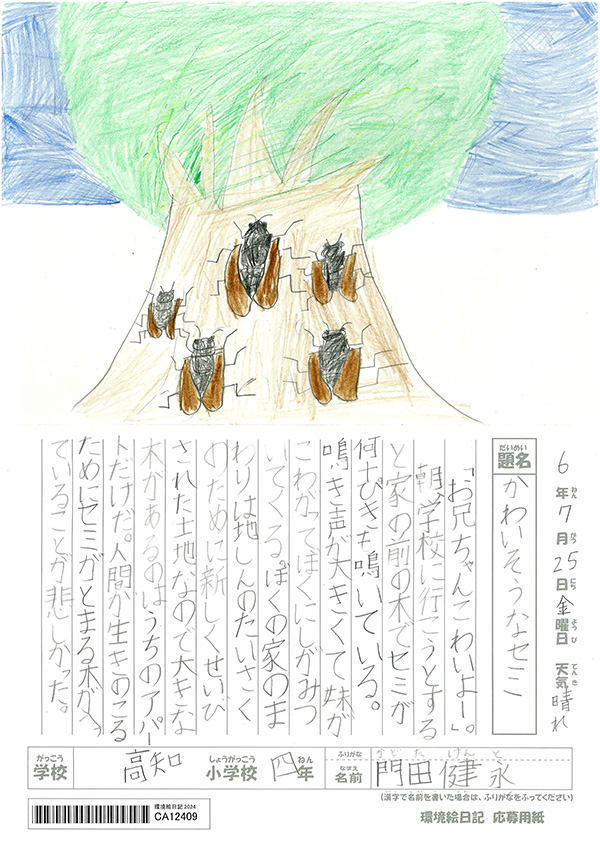 6年7月25日金曜日 天気晴れ
ねん がつ にち ようび てんき
だいめい
題名
かわいそうなセミ
「お兄ちゃんこわいよー」。
朝、学校に行こうとする
と家の前の木でセミが
何十ぴきも鳴いている。
鳴き声が大きくて妹が
こわがってぼくにしがみつ
いてくる。ぼくの家のま
わりは地しんのたいさく
のために新しくせいび
された土地なので大きな
木があるのはうちのアパー
トだけだ。人間が生きのこる
ためにセミがとまる木がへっ
ていることが悲しかった。
がっこう しょうがっこう ねん
学校 高知 小学校 四年
ふりがな かどた けんと
なまえ
名前 門田健永
(漢字で名前を書いた場合は、ふりがなをふってください)
環境絵日記 2024
CA12409
環境絵日記 応募用紙